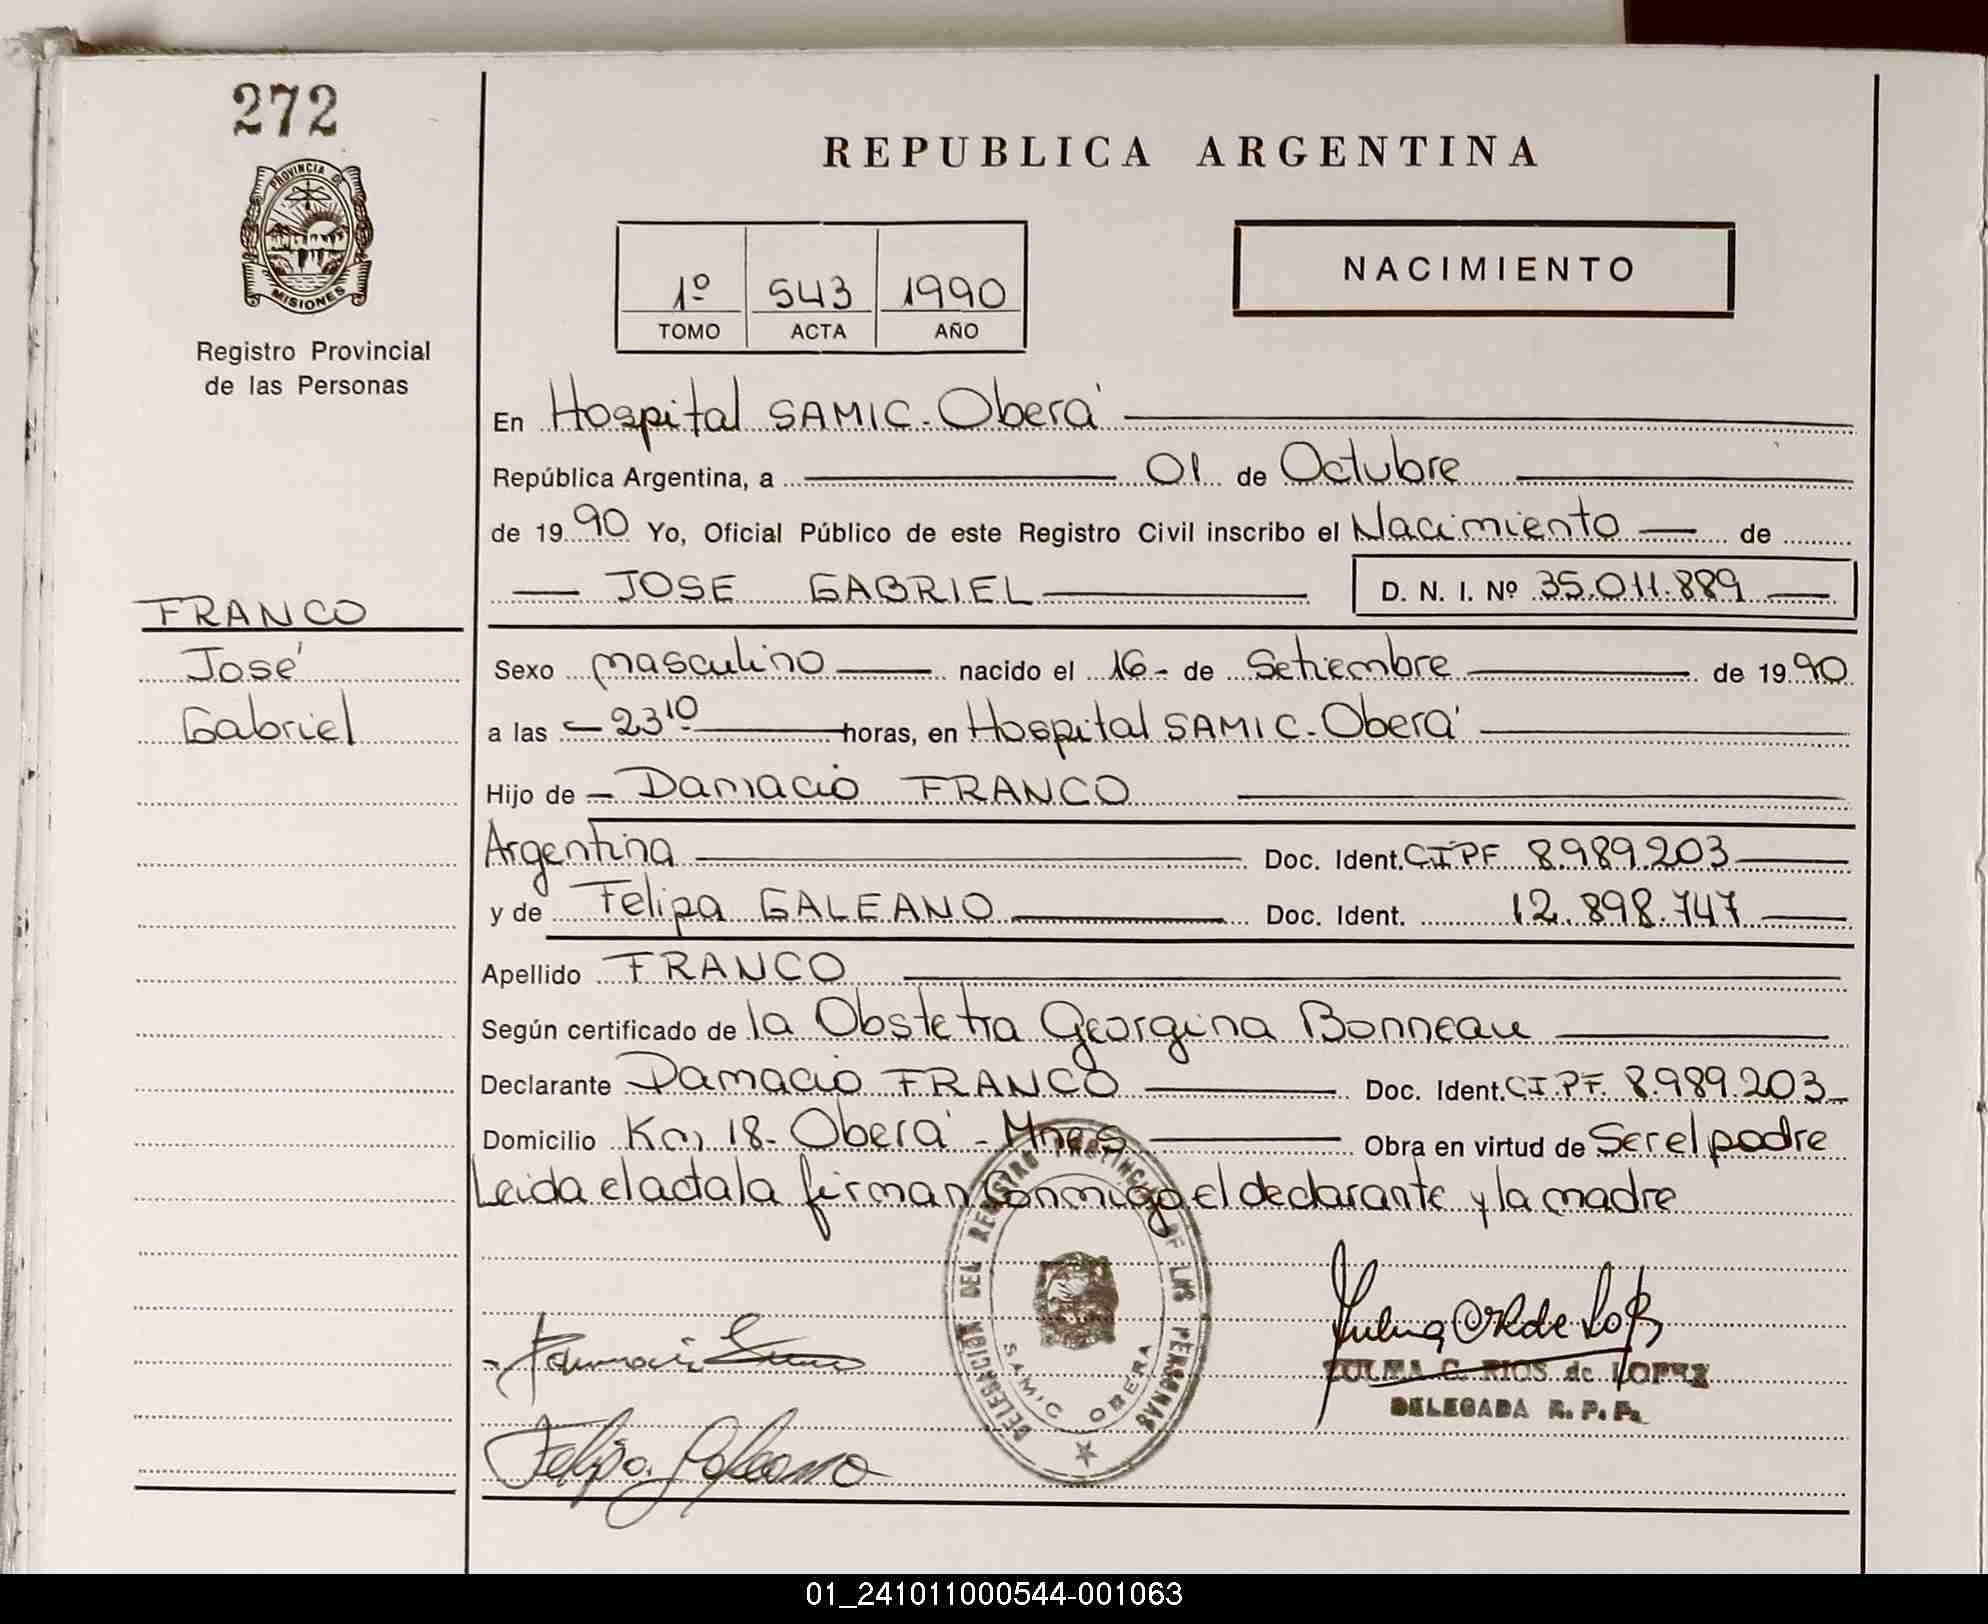 272
PROVINCIA DE
MISIONES
Registro Provincial
de las Personas
FRANCO
José
Gabriel
REPUBLICA ARGENTINA
1º 543 1990
TOMO ACTA AÑO
NACIMIENTO
En Hospital SAMIC-Oberá
República Argentina, a 01 de Octubre
de 1990 Yo, Oficial Público de este Registro Civil inscribo el Nacimiento de
JOSE GABRIEL D. N. I. Nº 35.011.889
Sexo masculino nacido el 16- de Setiembre de 1990
a las 23¹⁰ horas, en Hospital SAMIC-Oberá
Hijo de Damacio FRANCO
Argentina Doc. Ident. CIPF 8.989.203
y de Felipa GALEANO Doc. Ident. 12.898.747
Apellido FRANCO
Según certificado de la Obstetra Georgina Bonneau
Declarante Damacio FRANCO Doc. Ident. CI.PF. 8.989.203
Domicilio Km 18- Oberá - Mnes Obra en virtud de Ser el padre
Leida el acta la firman conmigo el declarante y la madre
DELEGACION DEL REGISTRO PROVINCIAL DE LAS PERSONAS
SAMIC OBERA
Felipa Galeano
ZULMA C. RIOS de LOPEZ
DELEGADA R. P. P.
01_241011000544-001063